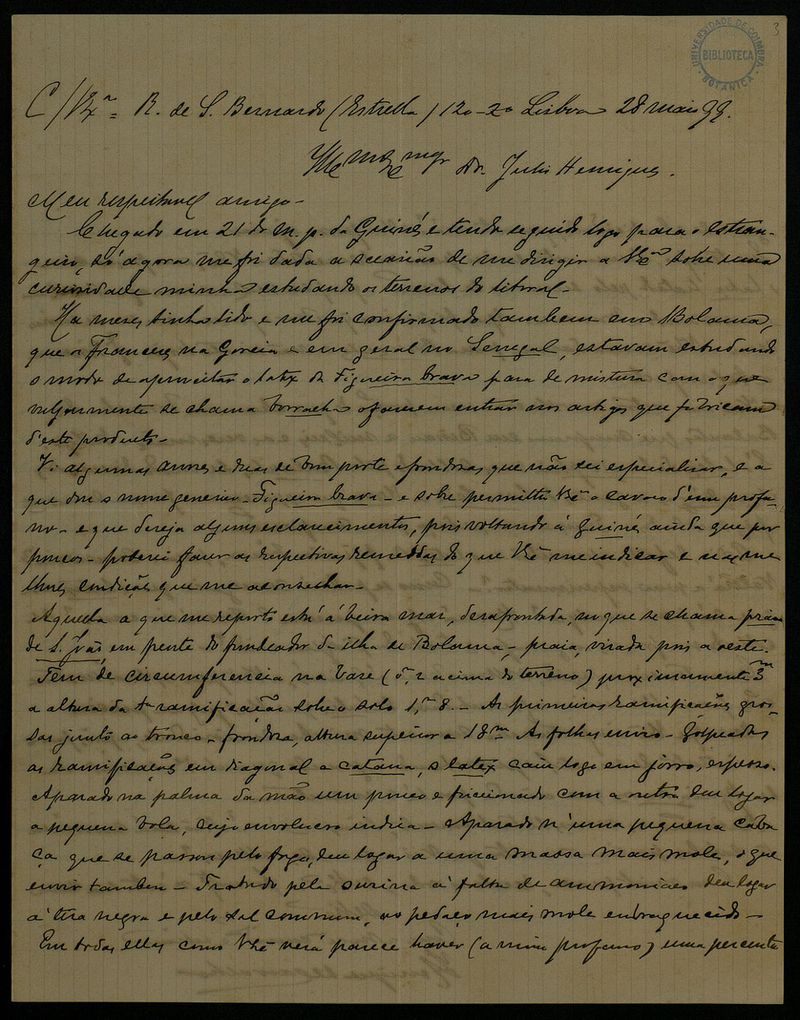 3
UNIVERSIDADE DE COIMBRA
BIBLIOTECA
BOTANICA
R. de S. Bernardo (Estrella) 120-2º Lisboa 28 maio 99.
Dr. Julio Henriques.
Meu respeitavel amigo-
Chegado em 21 do m. p. da Guiné e tendo seguido logo para o estran-
geiro, só agora me foi dada a occasião de me dirigir a VEª sobre uma
curiosidade minha estudando os terrenos do litoral-
Ha meses tinha lido e me foi confirmado tambem em Bolama,
que os Franceses na Goreia e em geral no Senegal, estavam estudando
o modo de aproveitar o latex da Figueira brava para de mistura com o que
vulgarmente se chama borracha o fazerem entrar nos artigos que fabricam
d'este producto-
Vi algumas arvores e duas de bom porte e frondosas que não sei especialisar, e a
que dou o nome generico-Figueira brava-e sobre permitta VE o cavaco d'um profa-
no-e que deseja alguns esclarecimentos, pois voltando á Guiné ainda que por
pouco-poderei fazer as respectivas remessas do que VE me indicar e nas me-
lhores condições que me aconselhar-
Aquella a que me reporto está á beira mar, desafrontada, no que se chama praia
de S. João, em frente do fundeador da ilha de Bolama-praia, virada pois a oeste.
Tem de circumferencia na base (0,m2 acima do terreno) proximamente 3m
a altura da 1ª ramificação sobre o solo 1,m8.-As primeiras ramificações gros-
sas junto ao tronco-frondosa, altura superior a 18m As folhas envio-Golpeadas
as ramificações em diagonal a catana, o latex caiu logo em jorro, espesso.
Aparado na palma da mão um pouco e friccionado com a outra deu logar
a pequena bola, cujo envolucro indica-Aparado n'uma pequena caba-
ça que se passou pelo fogo, deu logar a uma massa mais mole, o que
envio tambem-Tratado pela ourina á falta de ammoniaco deu logar
á tira negra e pelo sal commum, ao pedaço mais mole enbraquecido-
Em todas ellas como VE verá parece haver (a mim profano) uma percenta